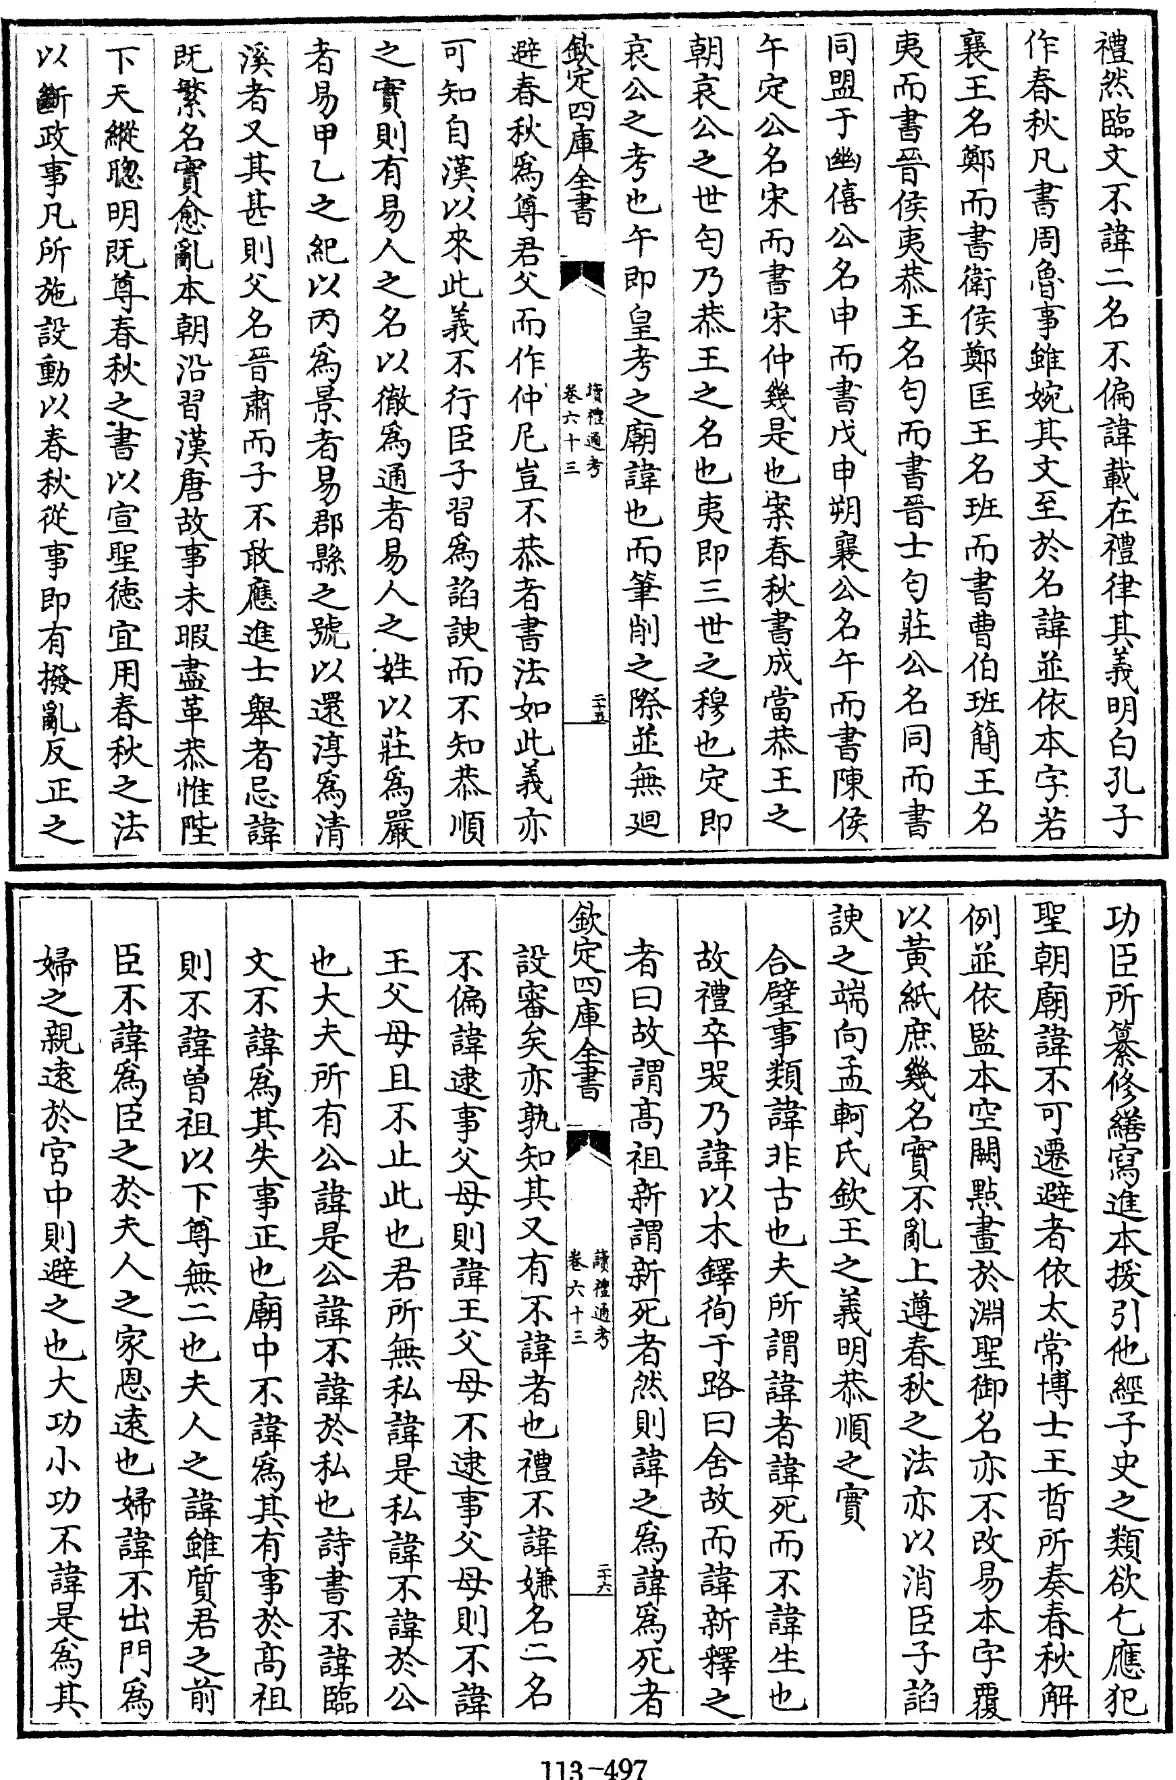 禮然臨文不諱二名不偏諱載在禮律其義明白孔子
作春秋凡書周魯事雖婉其文至於名諱並依本字若
襄王名鄭而書衛侯鄭匡王名班而書曹伯班簡王名
夷而書晉侯夷恭王名匄而書晉士匄莊公名同而書
同盟于幽僖公名申而書戊申朔襄公名午而書陳侯
午定公名宋而書宋仲幾是也案春秋書成當恭王之
朝哀公之世匄乃恭王之名也夷即三世之穆也定即
哀公之考也午即皇考之廟諱也而筆削之際並無廻
欽定四庫全書
讀禮通考
卷六十三
二十五
避春秋為尊君父而作仲尼豈不恭者書法如此義亦
可知自漢以來此義不行臣子習為諂諛而不知恭順
之實則有易人之名以徹為通者易人之姓以莊為嚴
者易甲乙之紀以丙為景者易郡縣之號以還淳為清
溪者又其甚則父名晉肅而子不敢應進士舉者忌諱
既繁名實愈亂本朝沿習漢唐故事未暇盡革恭惟陛
下天縱聰明既尊春秋之書以宣聖德宜用春秋之法
以斷政事凡所施設動以春秋從事即有撥亂反正之
功臣所纂修繕寫進本援引他經子史之類欲乞應犯
聖朝廟諱不可遷避者依太常博士王晢所奏春秋解
例並依監本空闕點畫於淵聖御名亦不改易本字覆
以黃紙庶幾名實不亂上遵春秋之法亦以消臣子諂
諛之端向孟軻氏欽王之義明恭順之實
合璧事類諱非古也夫所謂諱者諱死而不諱生也
故禮卒哭乃諱以木鐸徇于路曰舍故而諱新釋之
者曰故謂高祖新謂新死者然則諱之為諱為死者
欽定四庫全書
讀禮通考
卷六十三
二十六
設審矣亦孰知其又有不諱者也禮不諱嫌名二名
不偏諱逮事父母則諱王父母不逮事父母則不諱
王父母且不止此也君所無私諱是私諱不諱於公
也大夫所有公諱是公諱不諱於私也詩書不諱臨
文不諱為其失事正也廟中不諱為其有事於高祖
則不諱曾祖以下尊無二也夫人之諱雖質君之前
臣不諱為臣之於夫人之家恩遠也婦諱不出門為
婦之親遠於宮中則避之也大功小功不諱是為其
113-497